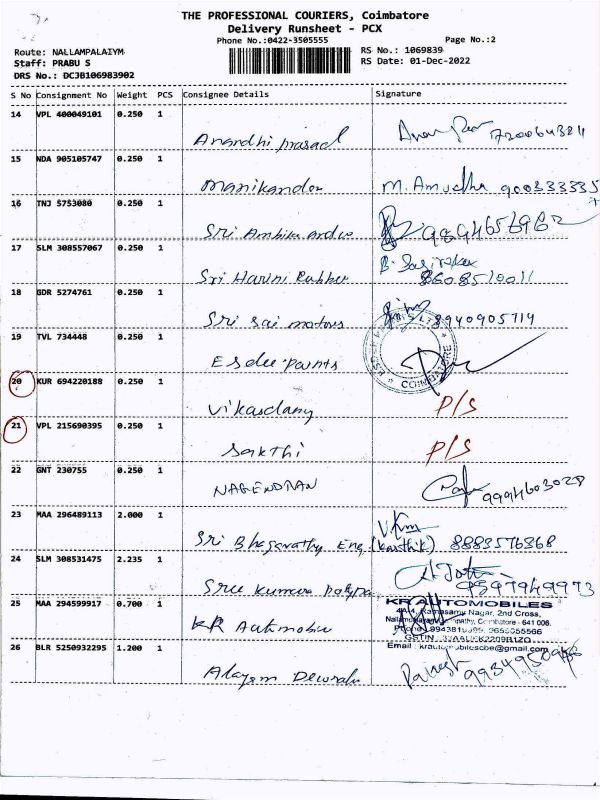 THE PROFESSIONAL COURIERS, Coimbatore
Delivery Runsheet - PCX
Phone No.:0422-3505555
Page No.:2
Route: NALLAMPALAIYM
RS No.: 1069839
Staff: PRABU S
RS Date: 01-Dec-2022
DRS No.: DCJB106983902
S No Consignment No Weight PCS Consignee Details Signature
14 VPL 400049101 0.250 1
Anandhi prasad
15 NDA 905105747 0.250 1
Manikandan M. Amudha 900333335
16 TNJ 5753080 0.250 1
Sri Ambika 9894656962
17 SLM 308557067 0.250 1
Sri Harini Rubber 8608510011
18 GDR 5274761 0.250 1
Sri Sai motors 8940905714
19 TVL 734448 0.250 1
Esdee paints
COIMBATORE
20 KUR 694220188 0.250 1
P/S
21 VPL 215690395 0.250 1
Sakthi P/S
22 GNT 230755 0.250 1
NAGENDRAN 9994603028
23 MAA 296489113 2.000 1
Sri Bhagavathy Eng (Karthik) 8883576368
24 SLM 308531475 2.235 1
Sree Kumara 9597949973
25 MAA 294599917 0.700 1
KR Automobiles
KR AUTOMOBILES
Ramasamy Nagar, 2nd Cross,
Coimbatore - 641 006.
9655055566
Email : krautomobilescbe@gmail.com
26 BLR 5250932295 1.200 1